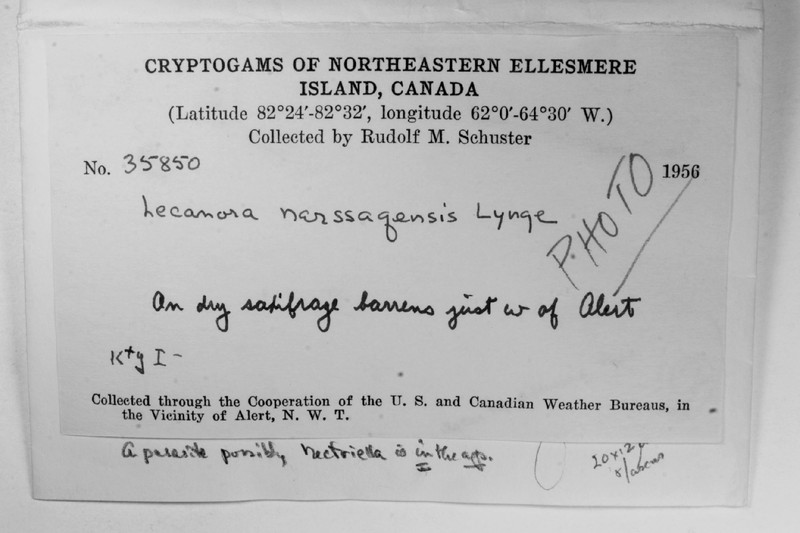 CRYPTOGAMS OF NORTHEASTERN ELLESMERE
ISLAND, CANADA
(Latitude 82°24′-82°32′, longitude 62°0′-64°30′ W.)
Collected by Rudolf M. Schuster
No. 35850
1956
PHOTO
Lecanora narssaqensis Lynge
On dry saxifrage barrens just w of Alert
K+y I-
Collected through the Cooperation of the U. S. and Canadian Weather Bureaus, in
the Vicinity of Alert, N. W. T.
A parasite possibly Nectriella is in the aps.
20x12
8/ascus